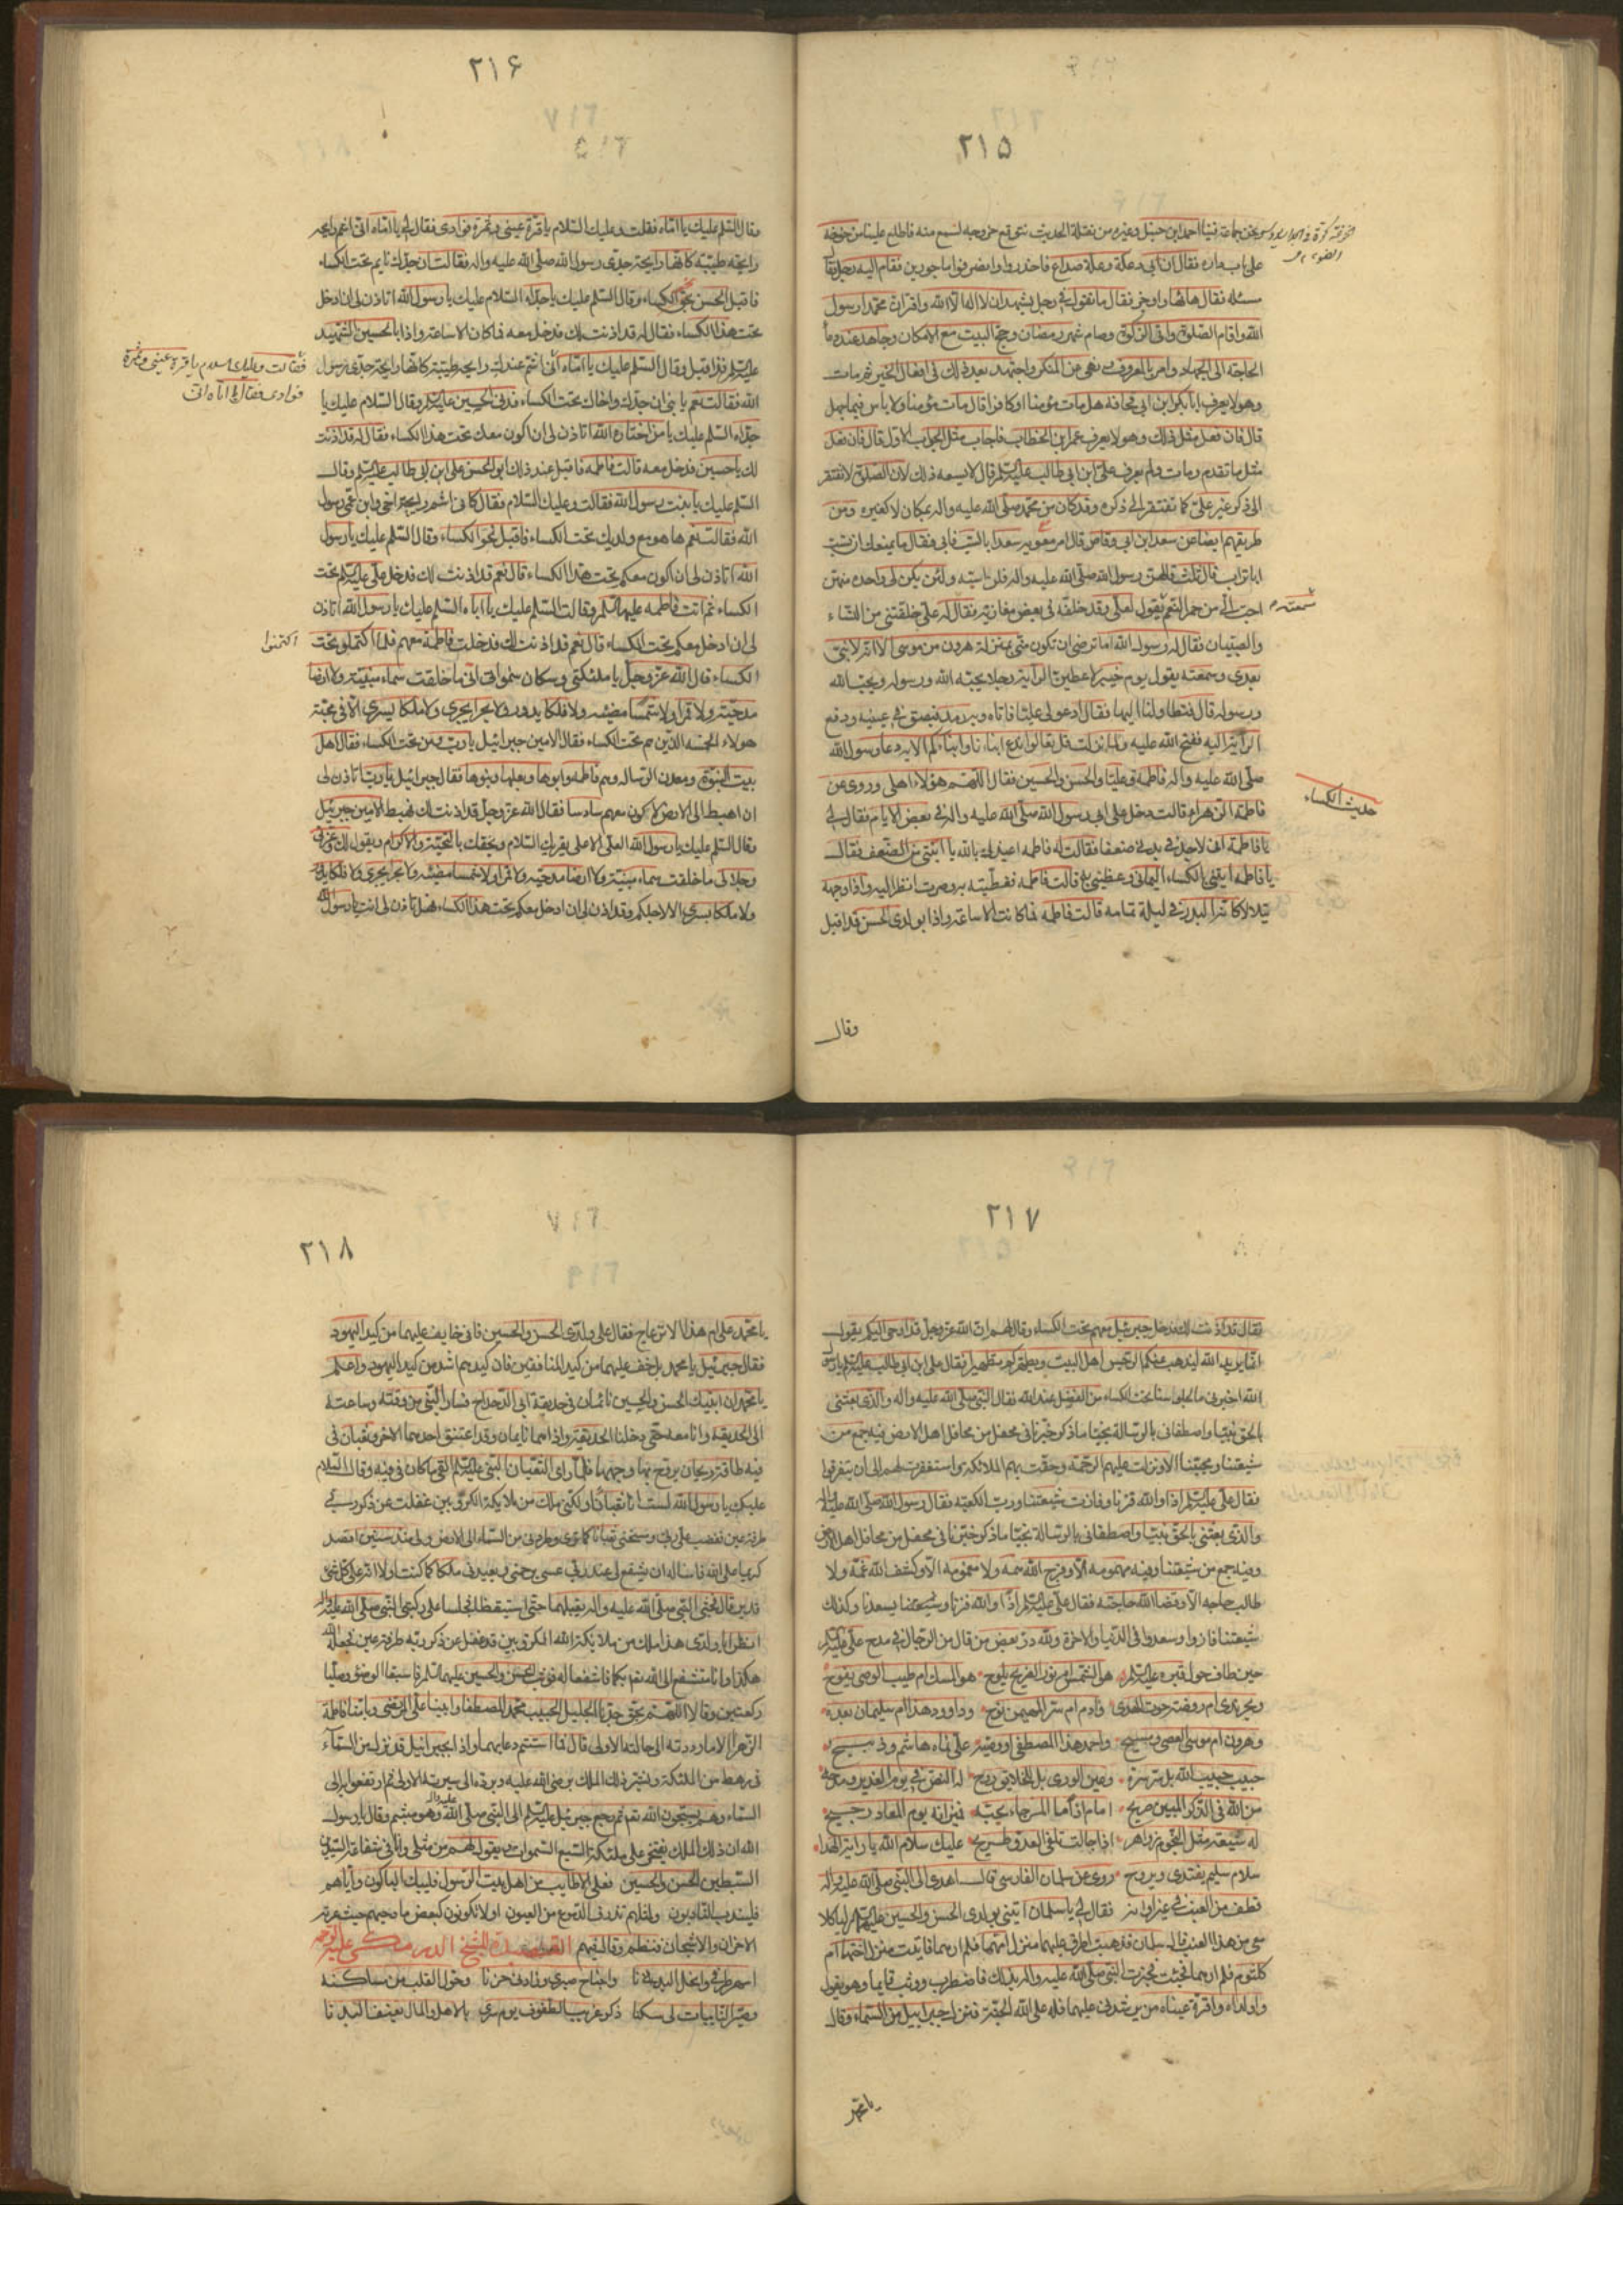 ٢١۵
ونحن جماعة فينا احمد ابن حنبل وغيره من نقلة الحديث نتوقع خروجه لنسمع منه فاطلع علينا من خوخة
على باب داره فقال ان ابى دعكة وعلة صداع فاحذروا وامضوا ماجورين فقام اليه رجل
مسئله فقال هاتها واوجز فقال ما تقول فى رجل يشهد ان لا اله الا الله واقر ان محمدا رسول
الله واقام الصلوة واتى الزكوة وصام شهر رمضان وحج البيت مع الامكان وجاهد عند
الحاجة الى الجهاد وامر بالمعروف ونهى عن المنكر واجتهد بعد ذلك فى افعال الخير ثم مات
وهو لا يعرف ابا بكر ابن ابى قحافة هل مات مؤمنا او كافرا قال مات مؤمنا ولا باس فيما جهل
قال فان فعل مثل ذلك وهو لا يعرف عمر ابن الخطاب فاجاب مثل الجواب الاول قال فان فعل
مثل ما تقدم ومات ولم يعرف على ابن ابى طالب عليه السلم قال لا يسعه ذلك لان الصلوة لا تفتقر
الى ذكر غير على كما تفتقر الى ذكره وقد كان من محمد صلى الله عليه واله بمكان لا كغيره ومن
طريقهم ايضا عن سعد ابن ابى وقاص قال امر معوية سعدا بالسب فابى فقال ما يمنعك ان تسب
ابا تراب قال ثلث قالهن رسول الله صلى الله عليه واله فلن اسبه ولئن يكن لى واحدة منهن
احب الى من حمر النعم يقول لعلى وقد خلفه فى بعض مغازيه فقال له على خلفتنى مع النساء
سمعته
والصبيان فقال له رسول الله اما ترضى ان تكون منى بمنزلة هرون من موسى الا انه لا نبى
بعدى وسمعته يقول يوم خيبر لاعطين الراية رجلا يحبه الله ورسوله ويحب الله
ورسوله قال فتطاولنا اليها فقال ادعوا لى عليا فاتاه وبه رمد فبصق فى عينيه ودفع
الراية اليه ففتح الله عليه ولما نزلت قل تعالوا ندع ابناءنا وابناءكم الاية دعا رسول الله
صلى الله عليه واله فاطمة وعليا والحسن والحسين فقال اللهم هؤلاء اهلى وروى عن
حديث الكساء
فاطمة الزهراء قالت دخل على ابى رسول الله صلى الله عليه واله فى بعض الايام فقال لى
يا فاطمة انى لاجد فى بدنى ضعفا فقالت له فاطمه اعيذك بالله يا ابتى من الضعف فقال
يا فاطمه ايتنى بالكساء اليمانى وغطينى به قالت فاطمه فغطيته به وصرت انظر اليه واذا وجهه
يتلالا كانه البدر فى ليلة تمامه قالت فاطمه فما كانت الا ساعة واذا بولدى الحسن قد اقبل
وقال
٢١۶
وقال السلم عليك يا اماه فقلت وعليك السلام يا قرة عينى وثمرة فوادى فقال لى يا اماه انى اشم رايحه
رايحة طيبة كانها رايحة جدى رسول الله صلى الله عليه واله فقالت ان جدك نايم تحت الكساء
فاقبل الحسن نحو الكساء وقال السلم عليك يا جداه السلام عليك يا رسول الله اتاذن لى ان ادخل
تحت هذا الكساء فقال له قد اذنت لك فدخل معه فما كان الا ساعة واذا بالحسين الشهيد
عليه السلم قد اقبل وقال السلم عليك يا اماه انى اشم عندك رايحة طيبة كانها رايحة جدى رسول
فقالت وعليك السلام يا قرة عينى وثمرة
فوادى فقال يا اماه انى
الله فقالت نعم يا بنى ان جدك واخاك تحت الكساء فدنى الحسين عليه السلم وقال السلام عليك يا
جداه السلم عليك يا من اختاره الله اتاذن لى ان اكون معك تحت هذا الكساء فقال له قد اذنت
لك يا حسين فدخل معه قالت فاطمه فاقبل عند ذلك ابو الحسن على ابن ابى طالب عليه السلم وقال
السلم عليك يا بنت رسول الله فقالت وعليك السلام فقال كانى اشم رايحة اخى وابن عمى رسول
الله فقالت نعم ها هو مع ولديك تحت الكساء فاقبل نحو الكساء وقال السلم عليك يا رسول
الله اتاذن لى ان اكون معكم تحت هذا الكساء قال نعم قد اذنت لك فدخل على عليه السلم تحت
الكساء ثم اتت فاطمه عليها السلم وقالت السلم عليك يا اباه السلم عليك يا رسول الله اتاذن
لى ان ادخل معكم تحت الكساء قال نعم قد اذنت لك فدخلت فاطمة معهم فلما اكتملو تحت
اكتمنوا
الكساء قال الله عز وجل يا ملئكتى وسكان سمواتى انى ما خلقت سماء مبنية ولا ارضا
مدحية ولا قمرا ولا شمسا مضيئه ولا فلكا يدور ولا بحرا يجرى ولا ملكا يسرى الا فى محبة
هولاء الخمسة الذين هم تحت الكساء فقال الامين جبرائيل يا رب ومن تحت الكساء فقال اهل
بيت النبوة ومعدن الرساله وهم فاطمة وابوها وبعلها وبنوها فقال جبرائيل يا رب اتاذن لى
ان اهبط الى الارض لاكون معهم سادسا فقال الله عز وجل قد اذنت لك فهبط الامين جبرئيل
وقال السلم عليك يا رسول الله العلى الاعلى يقريك السلام ويخصك بالتحية والاكرام ويقول لك وعزتى
وجلالى ما خلقت سماء مبنية ولا ارضا مدحية ولا قمرا ولا شمسا مضيئه ولا بحرا يجرى ولا فلكا
ولا ملكا يسرى الا لاجلكم وقد اذن لى ان ادخل معكم تحت هذا الكساء فهل تاذن لى انت يا رسول الله
٢١٧
فقال قد اذنت لك فدخل جبرئيل معهم تحت الكساء وقال لهم ان الله عز وجل قد اوحى اليكم يقول
انما يريد الله ليذهب عنكم الرجس اهل البيت ويطهركم تطهيرا فقال على ابن ابى طالب عليه السلم يا رسول
الله اخبرنى ما لجلوسنا تحت الكساء من الفضل عند الله فقال النبى صلى الله عليه واله والذى بعثنى
بالحق نبيا واصطفانى بالرسالة نجيا ما ذكر خبرنا فى محفل من محافل اهل الارض فيه جمع من
شيعتنا ومحبينا الا ونزلت عليهم الرحمة وحفت بهم الملائكة واستغفرت لهم الى ان يتفرقوا
فقال على عليه السلم اذا والله فزنا وفازت شيعتنا ورب الكعبة فقال رسول الله صلى الله عليه واله
والذى بعثنى بالحق نبيا واصطفانى بالرسالة نجيا ما ذكر خبرنا فى محفل من محافل اهل الارض
وفيه جمع من شيعتنا وفيه مهموم الا وفرج الله همه ولا مغموم الا وكشف الله غمه ولا
طالب حاجه الا وقضا الله حاجته فقال على عليه السلم اذا والله فزنا وسعدنا وكذلك
شيعتنا فازوا وسعدوا فى الدنيا والاخرة ولله در بعض من قال من الرجال فى مدح على
حين طاف حول قبره عليه السلم هو الشمس ام نور الضريح يلوح هو المسك ام طيب الوصى يفوح
وبحر ندى ام روضة حوت الهدى وادم ام سر المهيمن نوح وداوود هذا ام سليمان بعده
وهرون ام موسى العصى ومسيح واحمد هذا المصطفى ام وصيه على نماه هاشم وذبيح
حبيب حبيب الله بل سر سره وعين الورى بل للخلايق روح له النص فى يوم الغدير ومدحه
من الله فى الذكر المبين صريح امام اذا ما المرء جاء بحبه فميزانه يوم المعاد رجيح
له شيعة مثل النجوم زواهر اذا جادلت تلقى العدو طريح عليك سلام الله يا راية الهدا
سلام سليم يغتدى ويروح وروى عن سلمان الفارسى قال اهدى الى النبى صلى الله عليه واله
قطف من العنب فى غير اوانه فقال لى يا سلمان ايتنى بولدى الحسن والحسين عليهما السلم لياكلا
معى من هذا العنب قال سلمان فذهبت اطرق عليهما منزل امهما فلم ارهما فاتيت منزل اختهما ام
كلثوم فلم ارهما فجئت فخبرت النبى صلى الله عليه واله بذلك فاضطرب ووثب قايما وهو يقول
وا ولداه وا قرة عيناه من يرشدنى عليهما فله على الله الجنة فنزل جبرائيل من السماء وقال
يا محمد
٢١٨
يا محمد على ام هذا الانزعاج فقال على ولدى الحسن والحسين فانى خايف عليهما من كيد اليهود
فقال جبرئيل يا محمد بل خف عليهما من كيد المنافقين فان كيدهم اشد من كيد اليهود واعلم
يا محمد ان ابنيك الحسن والحسين نائمان فى حديقة ابى الدحداح فسار النبى من وقته وساعته
الى الحديقة وانا معه حتى دخلنا الحديقة واذا هما نايمان وقد اعتنق احدهما الاخر وثعبان فى
فيه طاقة ريحان يروح بها وجههما فلما راى الثعبان النبى عليه السلم القى ما كان فى فيه وقال السلام
عليك يا رسول الله لست انا ثعبانا ولكنى ملك من ملايكة الكروبين غفلت عن ذكر ربى
طرفة عين فغضب على ربى ومسخنى ثعبانا كما ترى وطردنى من السماء الى الارض ولى منذ سنين اقصد
كريما على الله فاساله ان يشفع لى عند ربى عسى يرحمنى ويعيدنى ملكا كما كنت اولا انه على كل شئ
قدير قال فجثى النبى صلى الله عليه واله يقبلهما حتى استيقظا فجلسا على ركبتى النبى صلى الله عليه واله
انظرا يا ولدى هذا ملك من ملايكة الله الكروبين قد غفل عن ذكر ربه طرفة عين فجعله الله
هكذا وانا مستشفع الى الله بكما فاشفعا له فوثب الحسن والحسين عليهما السلم فاسبغا الوضوء وصليا
ركعتين وقالا اللهم بحق جدنا الجليل الحبيب محمد المصطفى وابينا على المرتضى وبامنا فاطمة
الزهراء الا ما رددته الى حالته الاولى قال فما استتم دعاءهما واذا بجبرائيل قد نزل من السماء
فى رهط من الملئكة وبشر ذلك الملك برضى الله عليه وبرده الى سيرته الاولى ثم ارتفعوا به الى
السماء وهم يسبحون الله تعالى ثم رجع جبرئيل عليه السلم الى النبى صلى الله عليه واله وهو متبسم وقال يا رسول
الله ان ذلك الملك يفتخر على ملئكة السبع السموات ويقول لهم من مثلى وانا فى شفاعة السيدين
السبطين الحسن والحسين فعلى الاطايب من اهل بيت الرسول فليبك الباكون واياهم
فليندب النادبون ولمثلهم تذرف الدموع من العيون او لا تكونون كبعض مادحيهم حيث عرته
الاحزان والاشجان فنظم وقال فيهم القصيدة للشيخ الدرمكى عليه الرحمه
اسهر طرفى وانحل البدنا واجتاح صبرى وزادنى حزنا وحول القلب من مساكنه
وصير النايبات لى سكنا ذكر غريب الطفوف يوم سرى بالاهل والمال يعنف البدنا